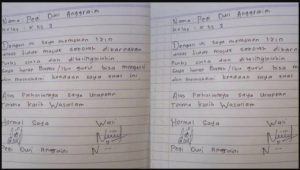 Nama: Pegi Dwi Anggraini
Kelas: X
Dengan ini saya memohon izin
tidak masuk sekolah dikarenakan
Putus cinta dan ditinggalkan
Saya harap Bapak/Ibu guru bisa mengerti
dan memahami keadaan saya saat ini
Atas Perhatiannya saya ucapkan
Terima kasih Wasalam
Hormat Saya Wali
Pegi Dwi Anggraini
Nama: Pegi Dwi Anggraini
Kelas: X
Dengan ini saya memohon izin
tidak masuk sekolah dikarenakan
Putus cinta dan ditinggalkan
Saya harap Bapak/Ibu guru bisa mengerti
dan memahami keadaan saya saat ini
Atas Perhatiannya saya ucapkan
Terima kasih Wasalam
Hormat Saya Wali
Pegi Dwi Anggraini